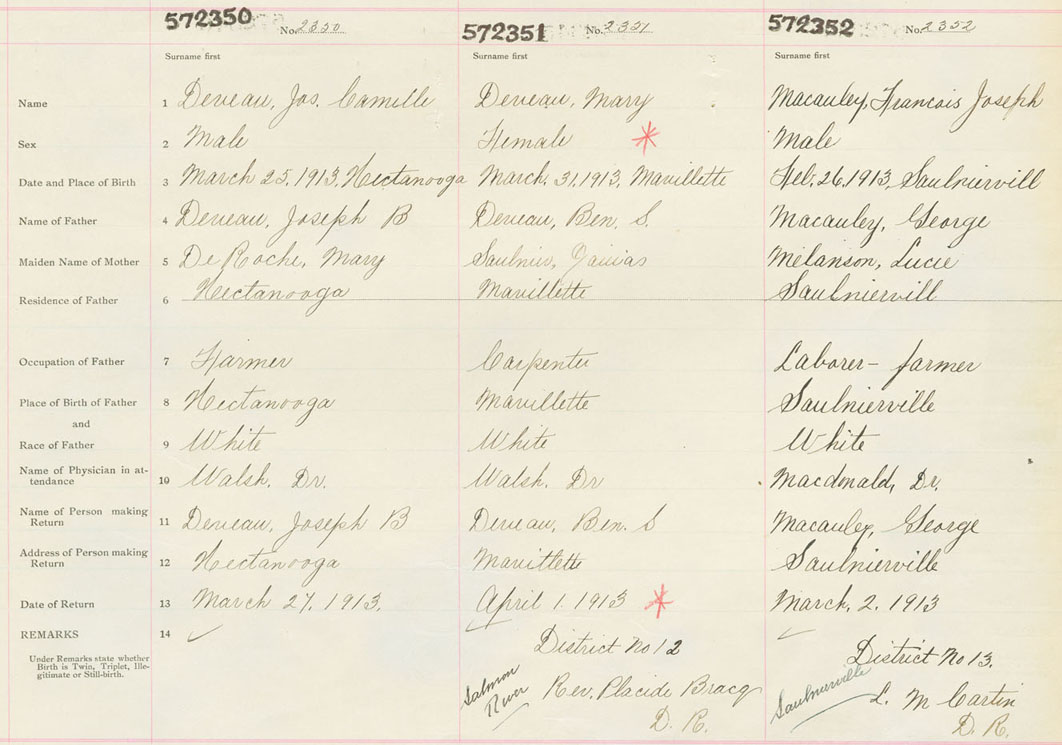 572350 No. 2350 572351 No. 2351 572352 No. 2352
Surname first Surname first Surname first
Name 1 Deveau, Jos. Camille Deveau, Mary Macauley, Francois Joseph
Sex 2 Male Female Male
Date and Place of Birth 3 March 25, 1913, Hectanooga March, 31, 1913, Mavillette Feb. 26, 1913, Saulniervill
Name of Father 4 Deveau, Joseph B Deveau, Ben. S. Macauley, George
Maiden Name of Mother 5 De Roche, Mary Saulnier, Melanson, Lucie
Residence of Father 6 Hectanooga Mavillette Saulniervill
Occupation of Father 7 Farmer Carpenter Laborer - farmer
Place of Birth of Father 8 Hectanooga Mavillette Saulnierville
and
Race of Father 9 White White White
Name of Physician in at-
tendance 10 Walsh. Dr. Walsh. Dr Macdonald, Dr.
Name of Person making
Return 11 Deveau, Joseph B Deveau, Ben. S Macauley, George
Address of Person making
Return 12 Hectanooga Mavillette Saulnierville
Date of Return 13 March 27, 1913. April 1. 1913 March, 2. 1913
REMARKS 14
Under Remarks state whether
Birth is Twin, Triplet, Ille-
gitimate or Still-birth.
District No 12 District No 13.
Salmon
River
Rev. Placide Bracq
D. R.
Saulnierville
L. M Cartin
D. R.